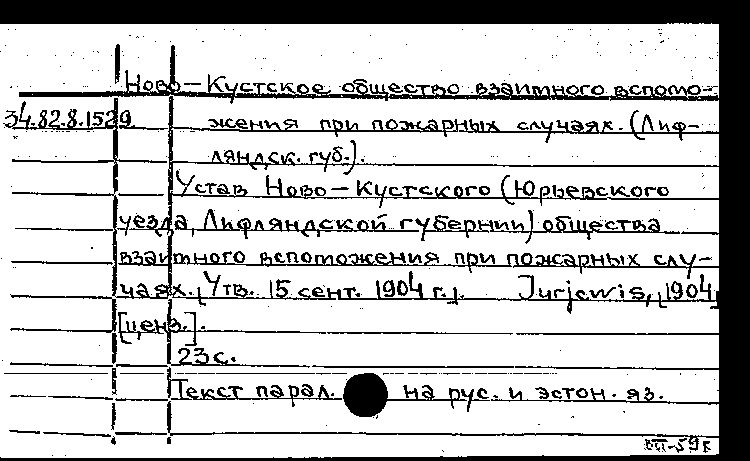 Ново-Кустское общество взаимного вспомо-
34.82.8.1529 жения при пожарных случаях. (Лиф-
ляндск. губ.).
Устав Ново-Кустского (Юрьевского
уезда, Лифляндской губернии) общества
взаимного вспоможения при пожарных слу-
чаях. [Утв. 15 сент. 1904 г.]. Jurjewis, [1904
[ценз.].
23 с.
Текст парал. на рус. и эстон. яз.